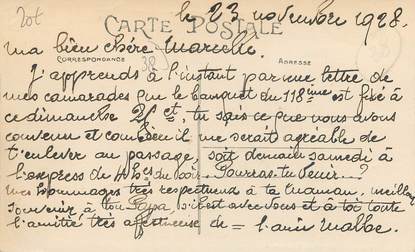 Lot
le 23 novembre 1928.
CARTE POSTALE
ma bien chère Marcelle.
CORRESPONDANCE
ADRESSE
J'apprends à l'instant par une lettre de
mes camarades que le banquet du 118ème est fixé à
ce dimanche 25 ct, tu sais ce que nous avons
convenu et combien il me serait agréable de
t'enlever au passage, soit demain samedi à
l'express de 4h du soir. Pourras-tu venir?
mes hommages très respectueux à ta maman, meilleur
souvenir à ton Papa, s'il est avec vous et à toi toute
l'amitié très affectueuse de = l'ami Malbe.